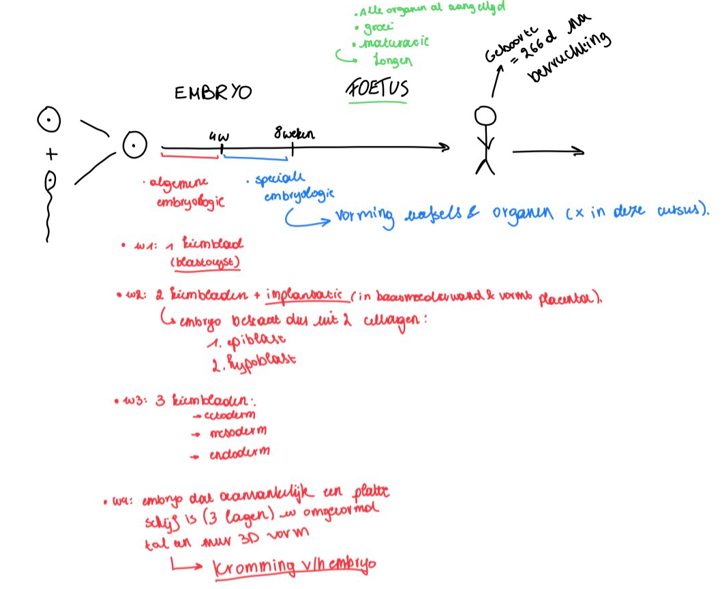 • Alle organen al aangelegd
• groei
• maturatie
longen
Geboorte
= 266d na
bevruchting
EMBRYO
FOETUS
4w
8 weken
+
• algemene
embryologie
• speciale
embryologie
vorming weefsels & organen (x in deze cursus).
• w1: 1 kiemblad
(blastocyst)
• w2: 2 kiembladen + implantatie (in baarmoederwand & vormt placenta).
embryo bestaat dus uit 2 cellagen:
1. epiblast
2. hypoblast
• w3: 3 kiembladen:
→ ectoderm
→ mesoderm
→ endoderm
• w4: embryo dat aanvankelijk een platte
schijf is (3 lagen) w omgevormd
tot een 3D vorm
Kromming v/h embryo